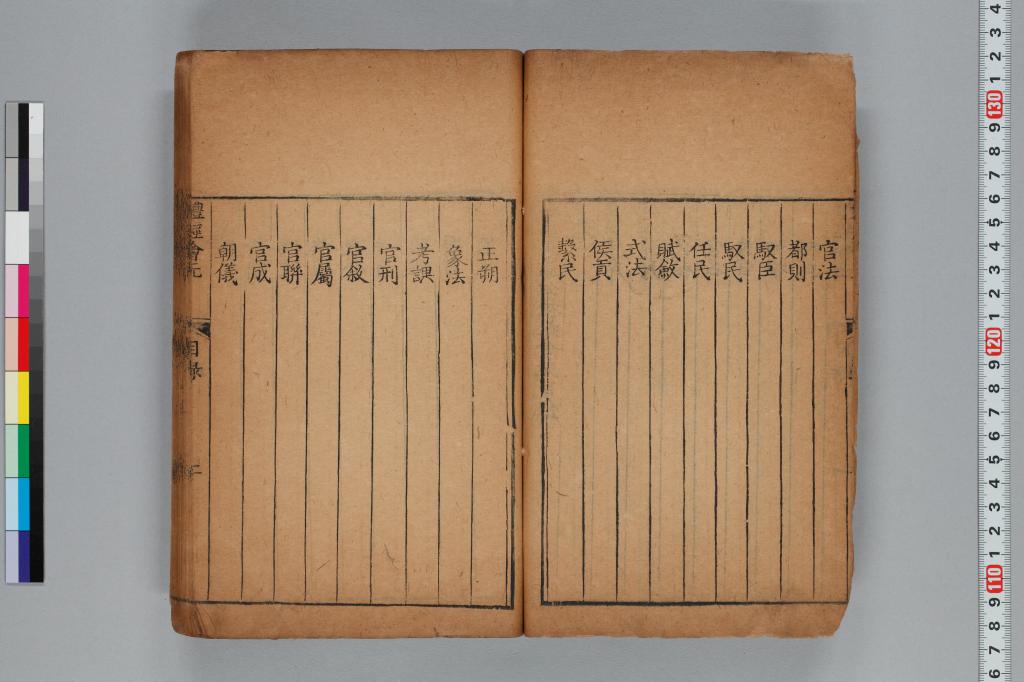 官法
都則
馭臣
馭民
任民
賦斂
式法
侯貢
繫民
正朔
象法
考課
官刑
官叙
官屬
官聯
官成
朝儀
禮經會元
目録
二